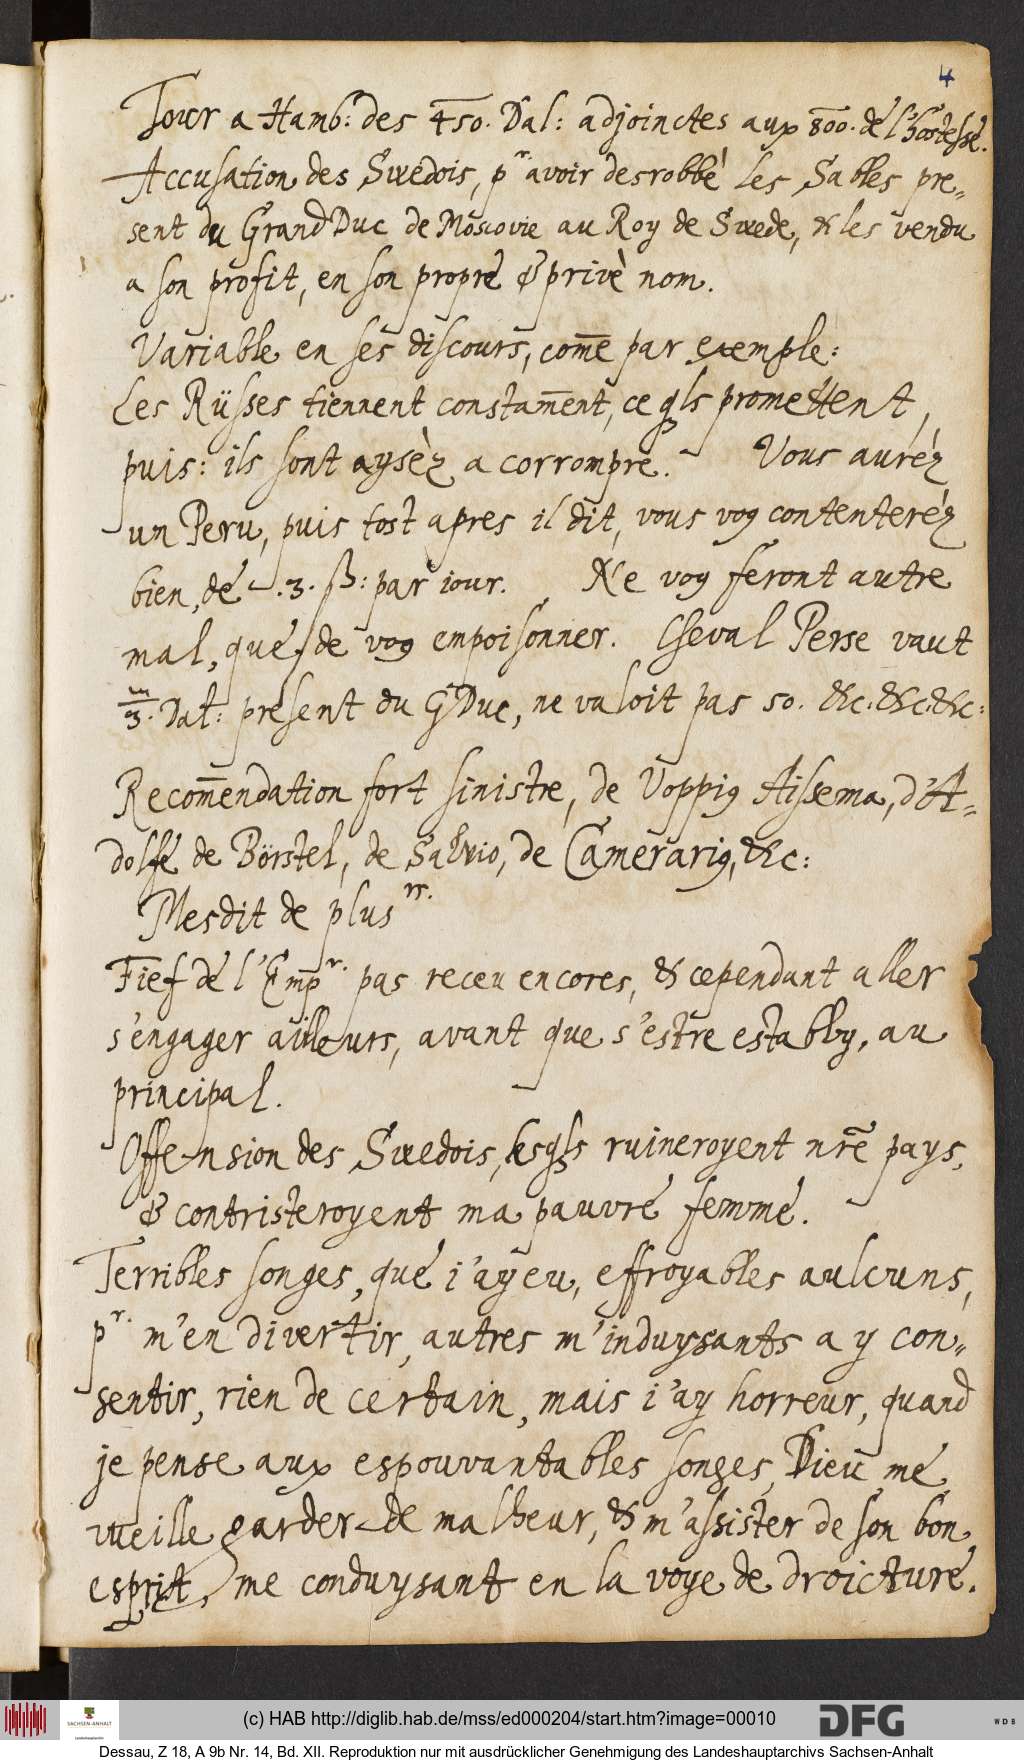 4
Tour a Hamb: des 450. Dal: adjoinctes aux 800. de l'hostesse.
Accusation des Swedois, pr avoir desrobbè les Sables pre-
sent du Grand Duc de Moscovie au Roy de Swede, & les vendu
a son profit, en son propre & privè nom.
Variable en ses discours, com̄e par exemple:
Les Rüsses tiennent constam̄ent, ce qls promettent,
puis: ils sont aysèz a corrompre. Vous auréz
un Peru, puis tost apres il dit, vous voꝰ contenteréz
bien, de .3. ß: par iour. Ne voꝰ feront autre
mal, que de voꝰ empoisonner. Cheval Perse vaut
m/3. Dal: present du GDuc, ne valoit pas 50. &c. &c. &c:
Recom̄endation fort sinistre, de Foppiꝰ Aissema, d'A-
dolfe de Börstel, de Salvio, de Camerariꝰ, &c:
Mesdit de plusrs.
Fief de l'Empr. pas receu encores, & cependant aller
s'engager ailleurs, avant que s'estre estably, au
principal.
Offension des Swedois, lesqls ruineroyent nr̄e pays,
& contristeroyent ma pauvre femme.
Terribles songes, que i'ay eu, effroyables aulcuns,
pr. m'en divertir, autres m'induysants a y con-
sentir, rien de certain, mais i'ay horreur, quand
je pense aux espouvantables songes, Dieu me
vueille garder de malheur, & m'assister de son bon
esprit, me conduysant en la voye de droicture.
(c) HAB http://diglib.hab.de/mss/ed000204/start.htm?image=00010
SACHSEN-ANHALT
DFG
WDB
Dessau, Z 18, A 9b Nr. 14, Bd. XII. Reproduktion nur mit ausdrücklicher Genehmigung des Landeshauptarchivs Sachsen-Anhalt